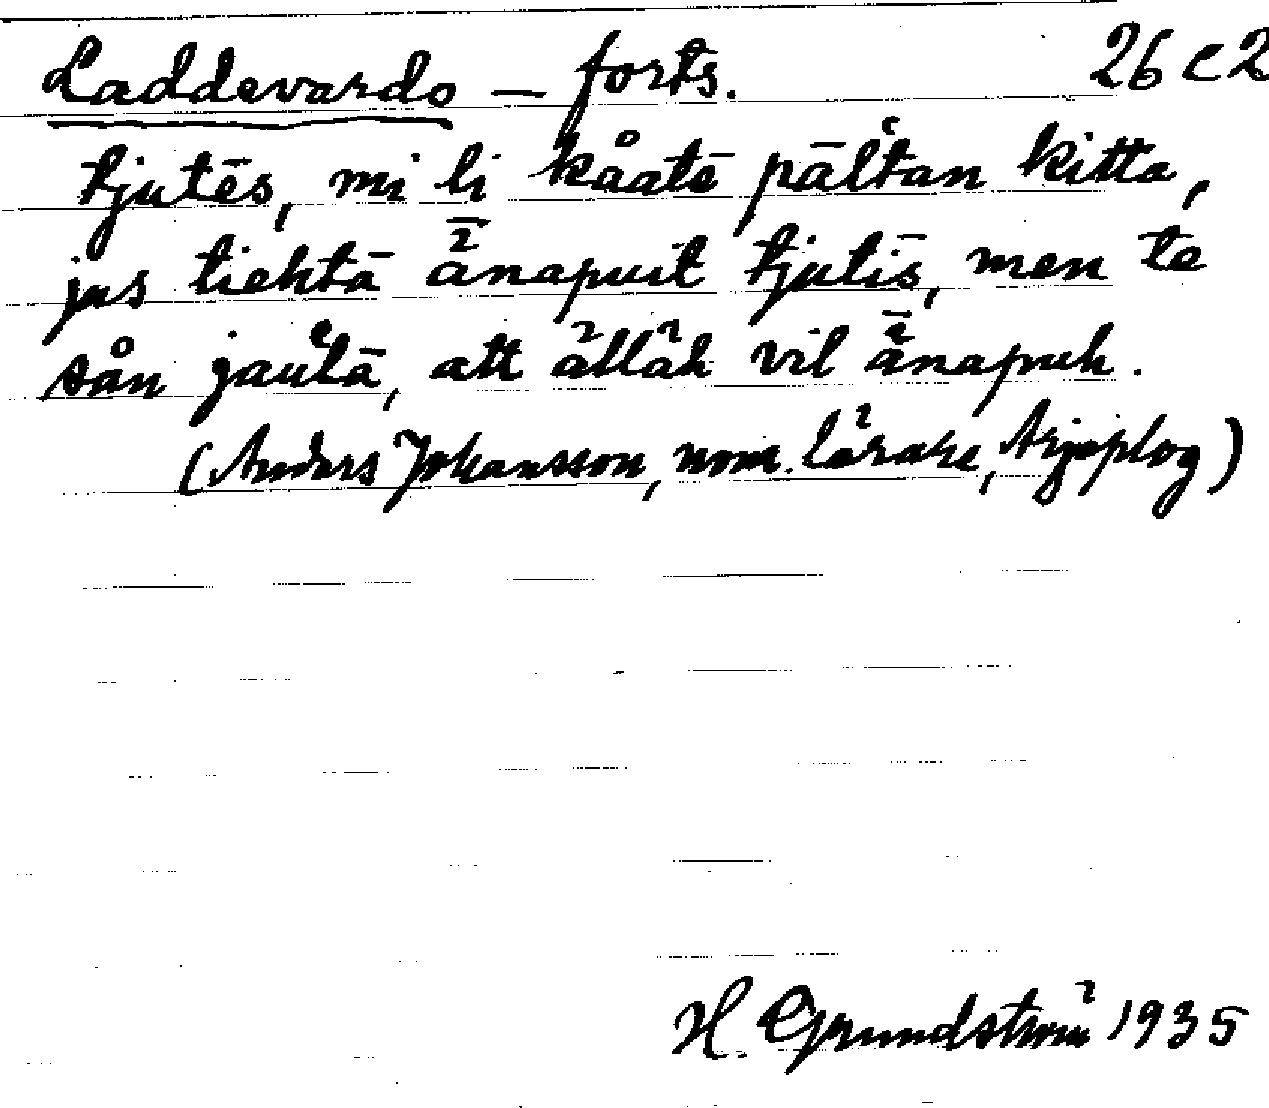 Laddevardo — forts. 26 c 2
tjutēs, mi li kåatē pāĺtan kitta,
jus tiehtā ǟnapuit tjutīs, men te
sån jaut̔ā, att ällāh vil ǟnapuh.
(Anders Johansson, nom. lärare, Arjeplog)
H. Grundström 1935